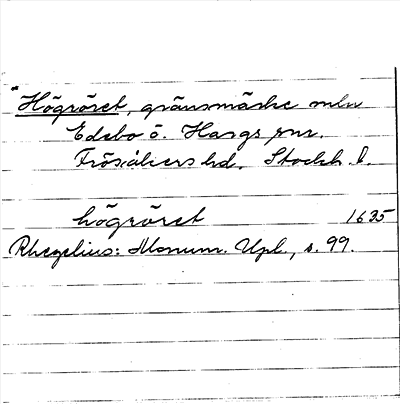 "Högröret, gränsmärke mln
Edebo o. Hargs snr.
Frösåkers hd. Stockh. l.
högröret 1635
Rhezelius: Monum. Upl., s. 99.